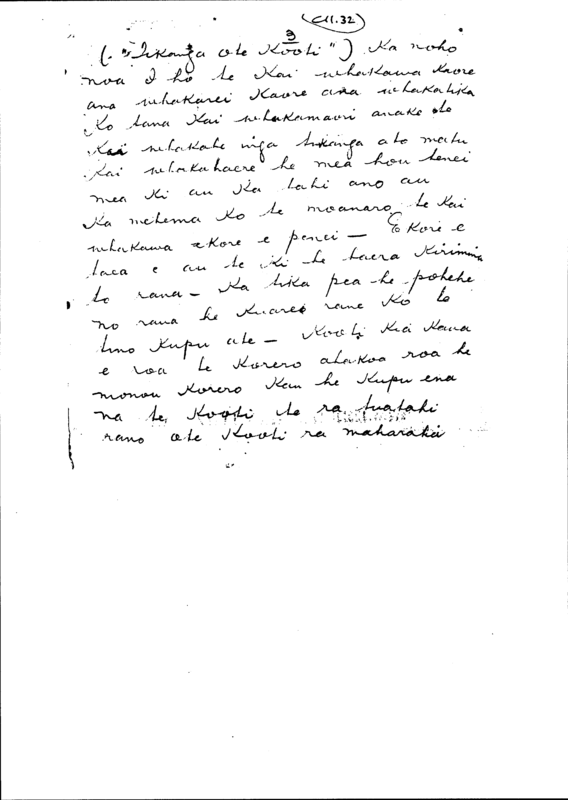 C11.32
3
(. "Tikanga ote Kooti") Ka noho
noa I ho te Kai whakawa Kaore
ana whakarei Kaore ana whakatika
Ko tana Kai whakamaori anake te
Kai whakahe nga tikanga ato matu
Kai whakahaere he mea hou tenei
mea Ki au Ka tahi ano au
Ka mehema Ko te moanaro te Kai
whakawa ekore e penei — E Kore e
taea e au te Ki he taera Kirimina
to rana — Ka tika pea he pohehe
no rana he Kuareo rane Ko te
tino Kupu ate — Kooti Kia Kaua
e roa te Korero atakoa roa he
monou Korero Kau he Kupu ena
na te Kooti ite ra tuatahi
rano ote Kooti ra maharatia